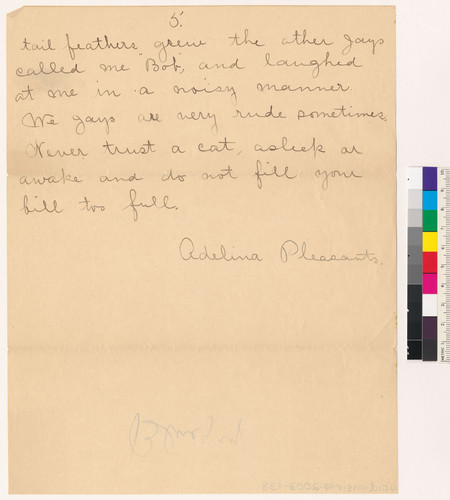 5.
tail feathers grew the other jays
called me Bob, and laughed
at me in a noisy manner.
We jays are very rude sometimes.
Never trust a cat, asleep or
awake and do not fill your
bill too full.
Adelina Pleasants.